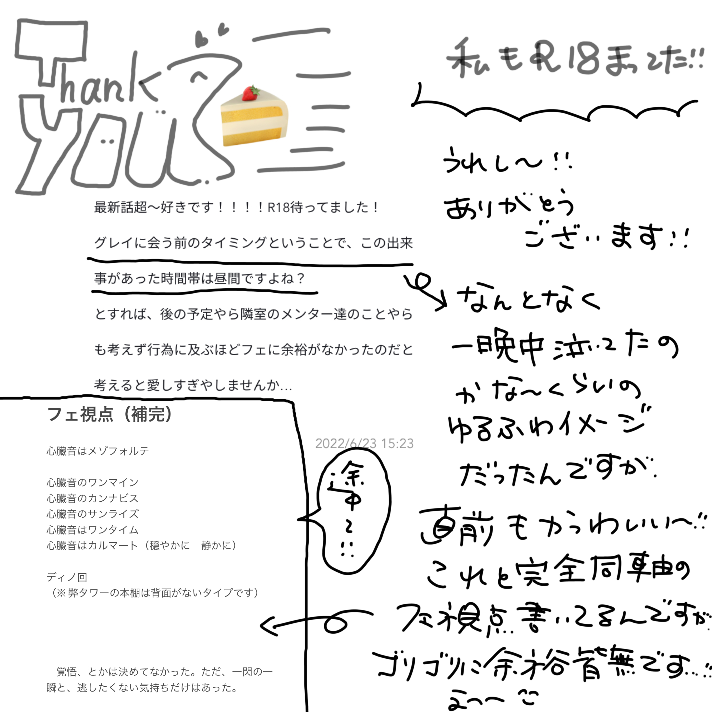 Thank
YOU
私もR18まってた!!
うれし〜!!
ありがとう
ございます!!
最新話超〜好きです！！！！R18待ってました！
グレイに会う前のタイミングということで、この出来
事があった時間帯は昼間ですよね？
とすれば、後の予定やら隣室のメンター達のことやら
も考えず行為に及ぶほどフェに余裕がなかったのだと
考えると愛しすぎやしませんか…
2022/6/23 15:23
なんとなく
一晩中泣いてたの
かな〜くらいの
ゆるふわイメージ
だったんですが
直前もかっわいい〜!!
これと完全同軸の
フェ視点書いてるんですが
ゴリゴリに余裕皆無です…!!
フェ視点（補完）
心臓音はメゾフォルテ
心臓音のワンマイン
心臓音のカンナビス
心臓音のサンライズ
心臓音はワンタイム
心臓音はカルマート（穏やかに　静かに）
ディノ回
（※弊タワーの本棚は背面がないタイプです）
覚悟、とかは決めてなかった。ただ、一閃の一
瞬と、逃したくない気持ちだけはあった。
途中〜!!